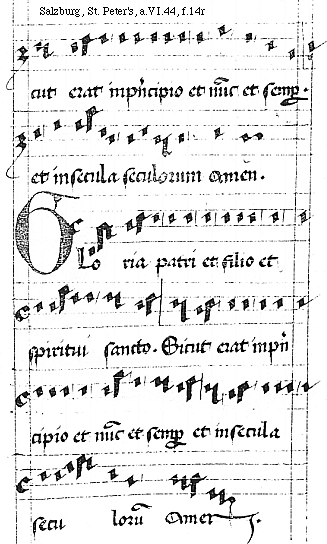 Salzburg, St. Peter's, a.VI.44, f.14r
cut erat inpⁱncipio et nūc et semꝑ.
et insecula seculorum amēn.
Glo ria patri et filio et
spiritui sancto. Sicut erat inpⁱn
cipio et nūc et semꝑ et insecula
secu lorū Amen.